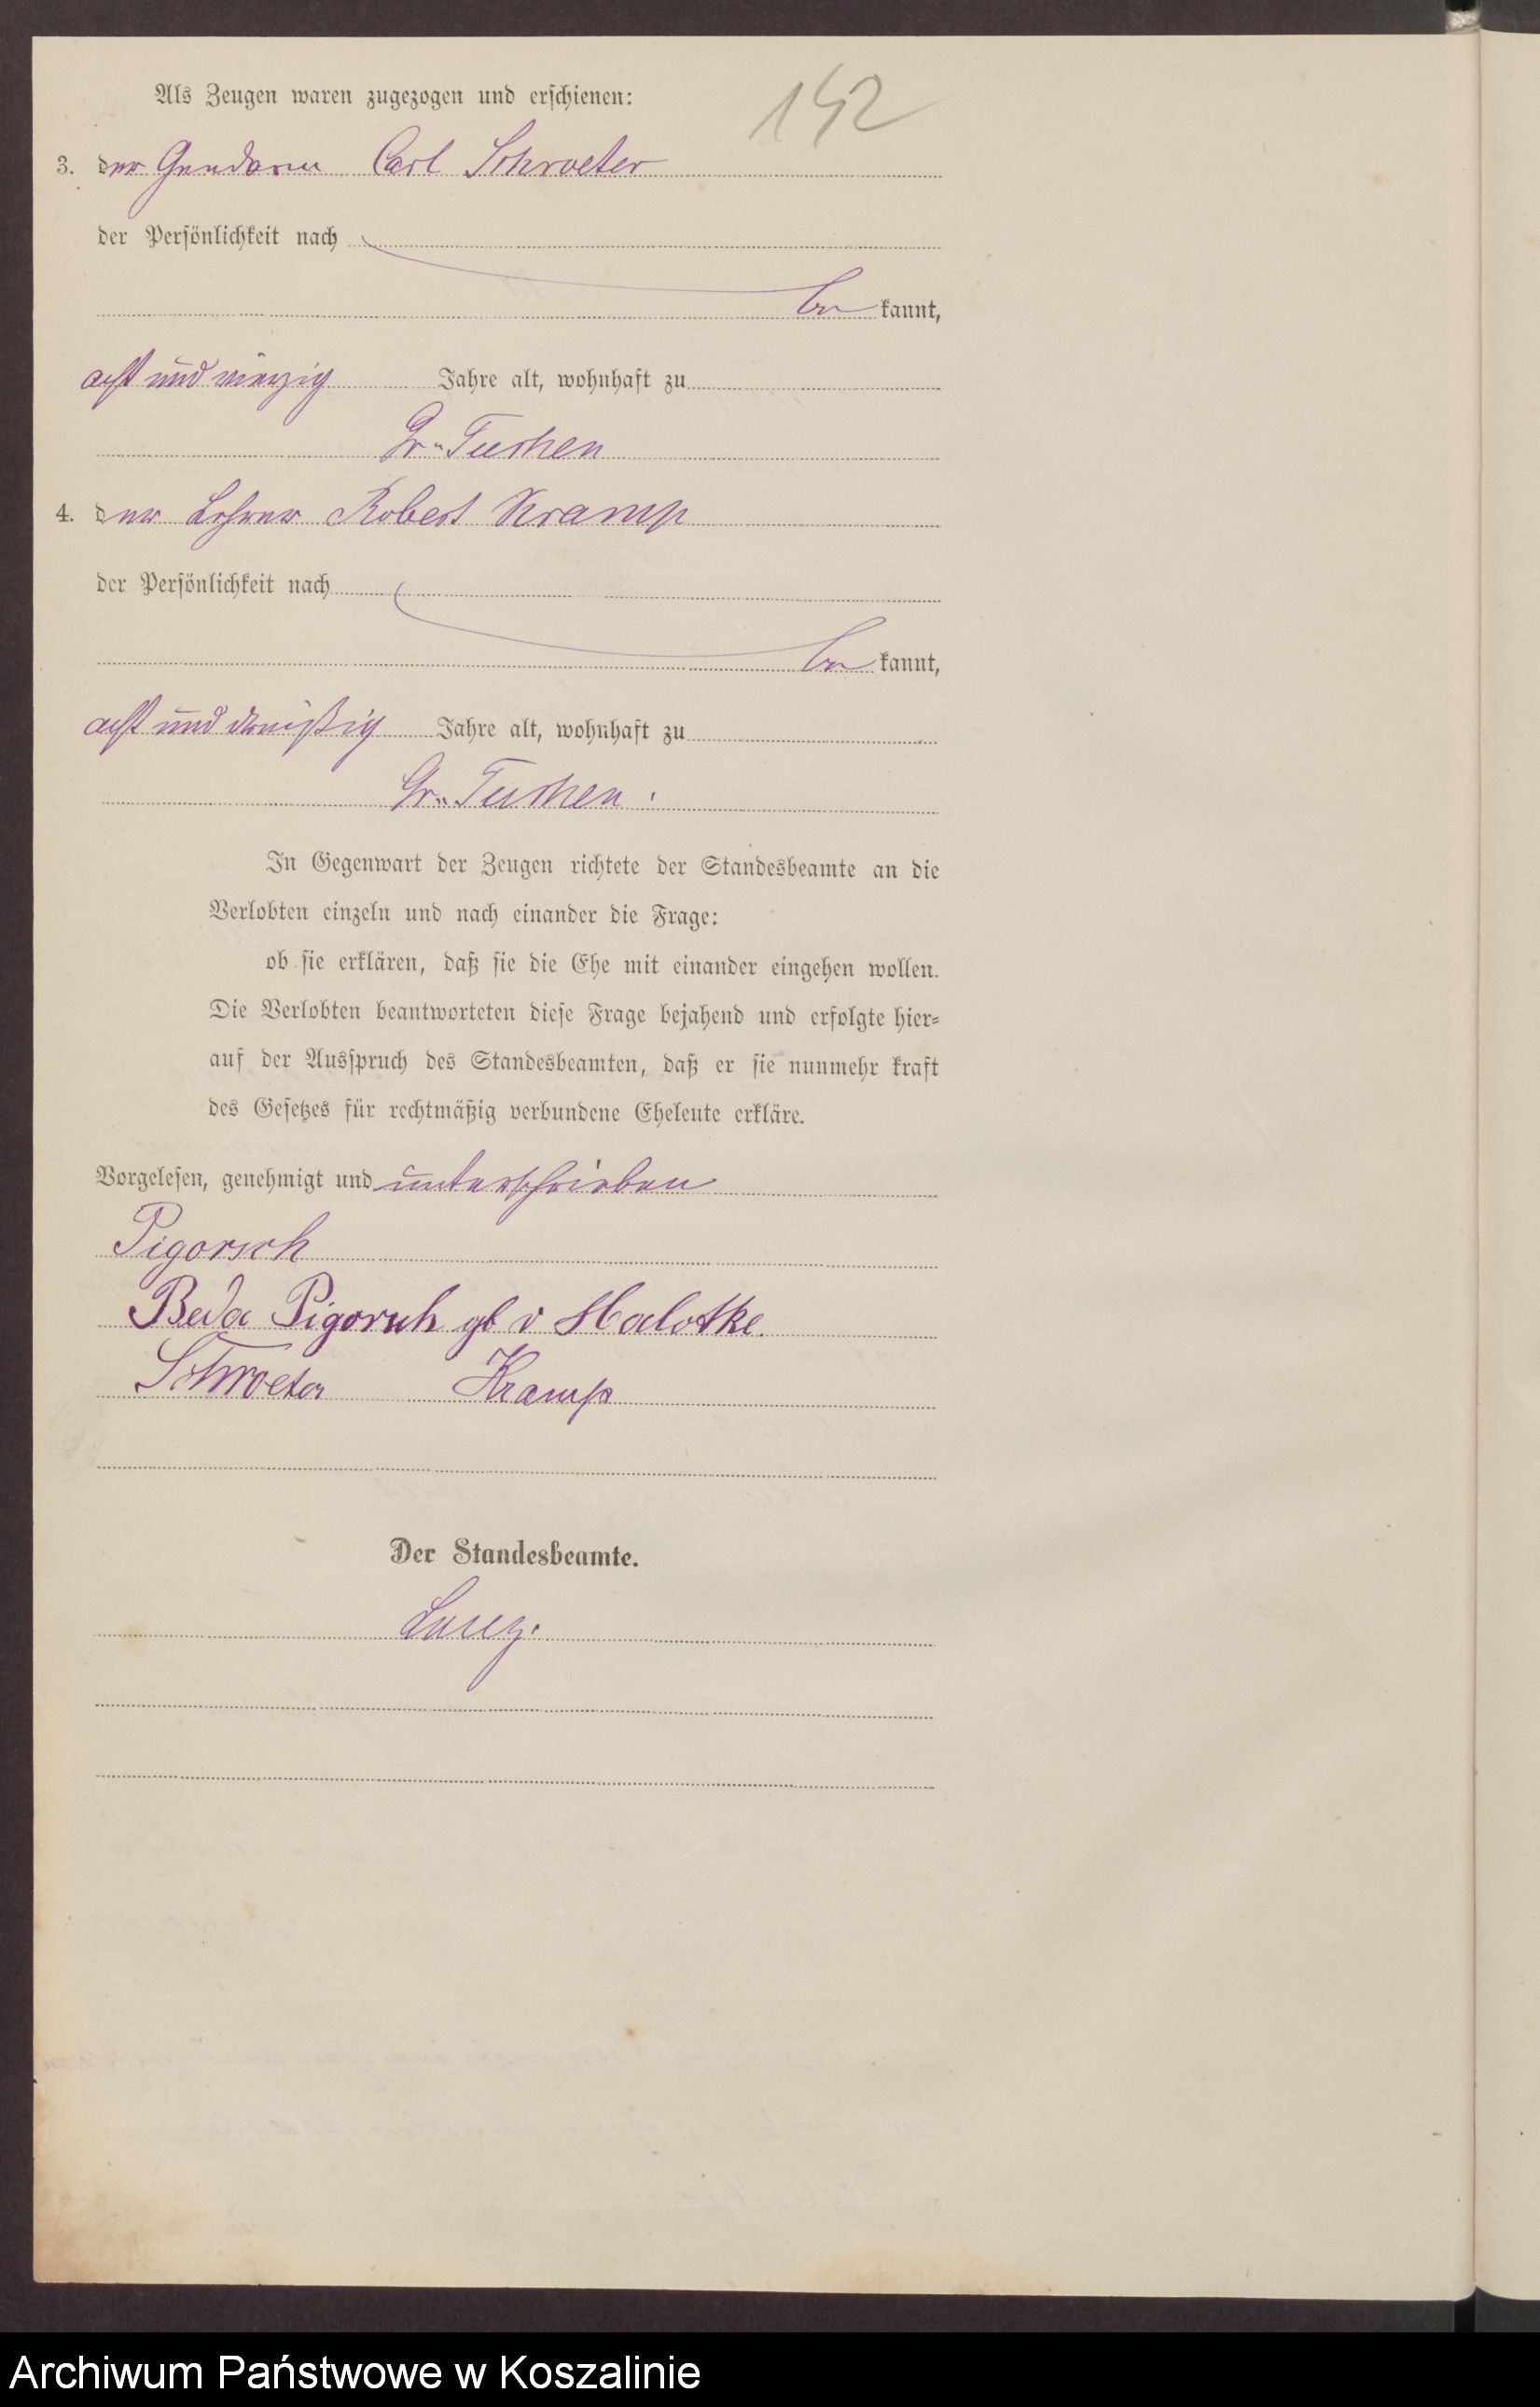 142
Als Zeugen waren zugezogen und erschienen:
3. der Gendarm Carl Schroeter
der Persönlichkeit nach
be kannt,
acht und vierzig Jahre alt, wohnhaft zu
Gr. Tuchen
4. der Lehrer Robert Kramp
der Persönlichkeit nach
be kannt,
acht und dreißig Jahre alt, wohnhaft zu
Gr. Tuchen.
In Gegenwart der Zeugen richtete der Standesbeamte an die
Verlobten einzeln und nach einander die Frage:
ob sie erklären, daß sie die Ehe mit einander eingehen wollen.
Die Verlobten beantworteten diese Frage bejahend und erfolgte hier-
auf der Ausspruch des Standesbeamten, daß er sie nunmehr kraft
des Gesetzes für rechtmäßig verbundene Eheleute erkläre.
Vorgelesen, genehmigt und unterschrieben
Pigorsch
Beda Pigorsch gb v Malotke.
Schroeter Kramp
Der Standesbeamte.
Archiwum Państwowe w Koszalinie